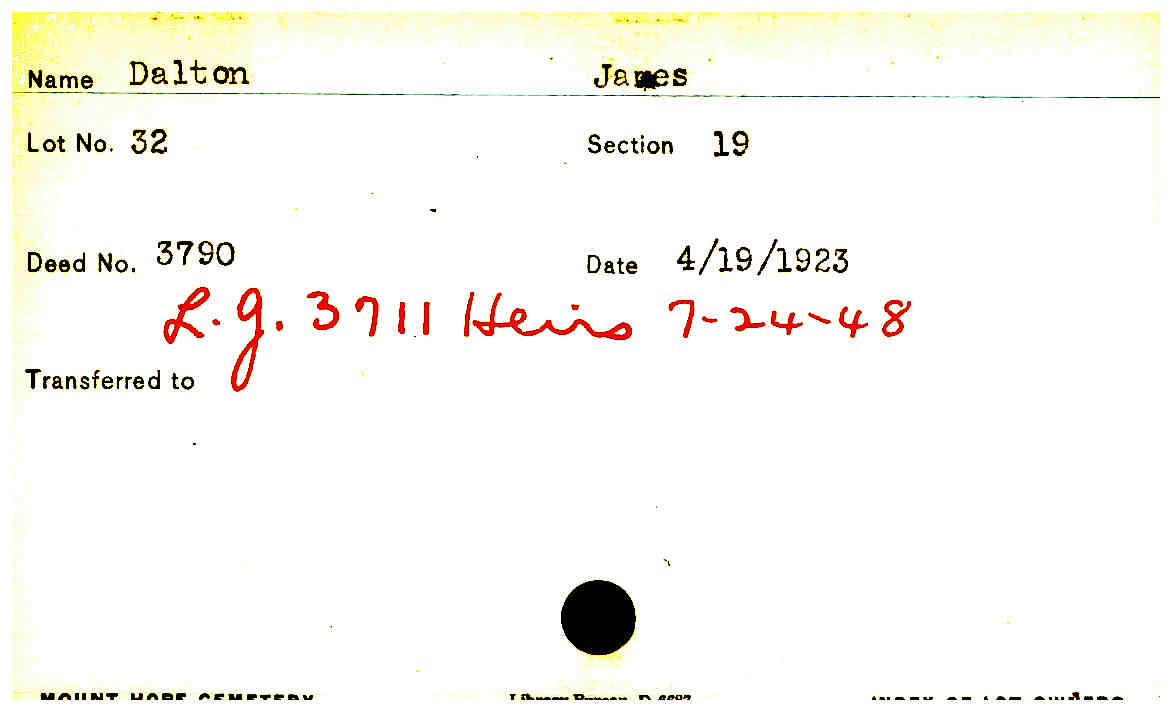 Name Dalton James
Lot No. 32 Section 19
Deed No. 3790 Date 4/19/1923
L.g. 3711 Heirs 7-24-48
Transferred to
MOUNT HOPE CEMETERY Library Bureau D-6697 INDEX OF LOT OWNERS